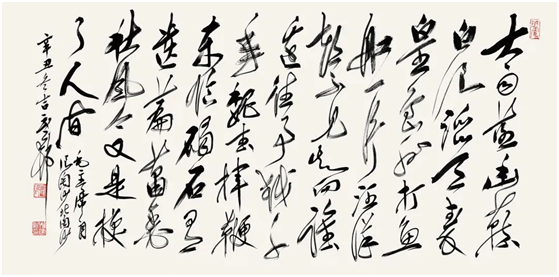 大雨落幽燕
白浪滔天秦
皇岛外打鱼
船一片汪洋
都不见知向谁
边往事越千
年魏武挥鞭
东临碣石有
遗篇萧瑟
秋风今又是换
了人间
辛丑冬吉